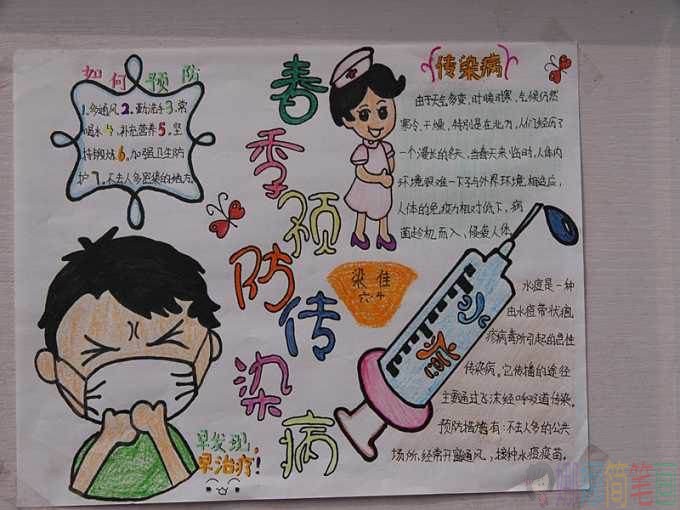 如何预防
1.多通风2.勤洗手3.常
喝水4.补充营养5.坚
持锻炼6.加强卫生防
护7.不去人多密集的地方.
春季预防传染病
传染病
由于天气多变，时暖时寒，气候仍然
寒冷、干燥，特别是在北方，人们经历了
一个漫长的冬天，当春天来临时，人体内
环境很难一下子与外界环境相适应，
人体的免疫力相对低下，病
菌趁机而入，侵袭人体
梁佳
六.4
水痘是一种
由水痘带状疱
疹病毒所引起的急性
传染病。它传播的途径
主要通过飞沫经呼吸道传染。
预防措施有：不去人多的公共
场所，经常开窗通风，接种水痘疫苗。
早发现，
早治疗！
简笔画